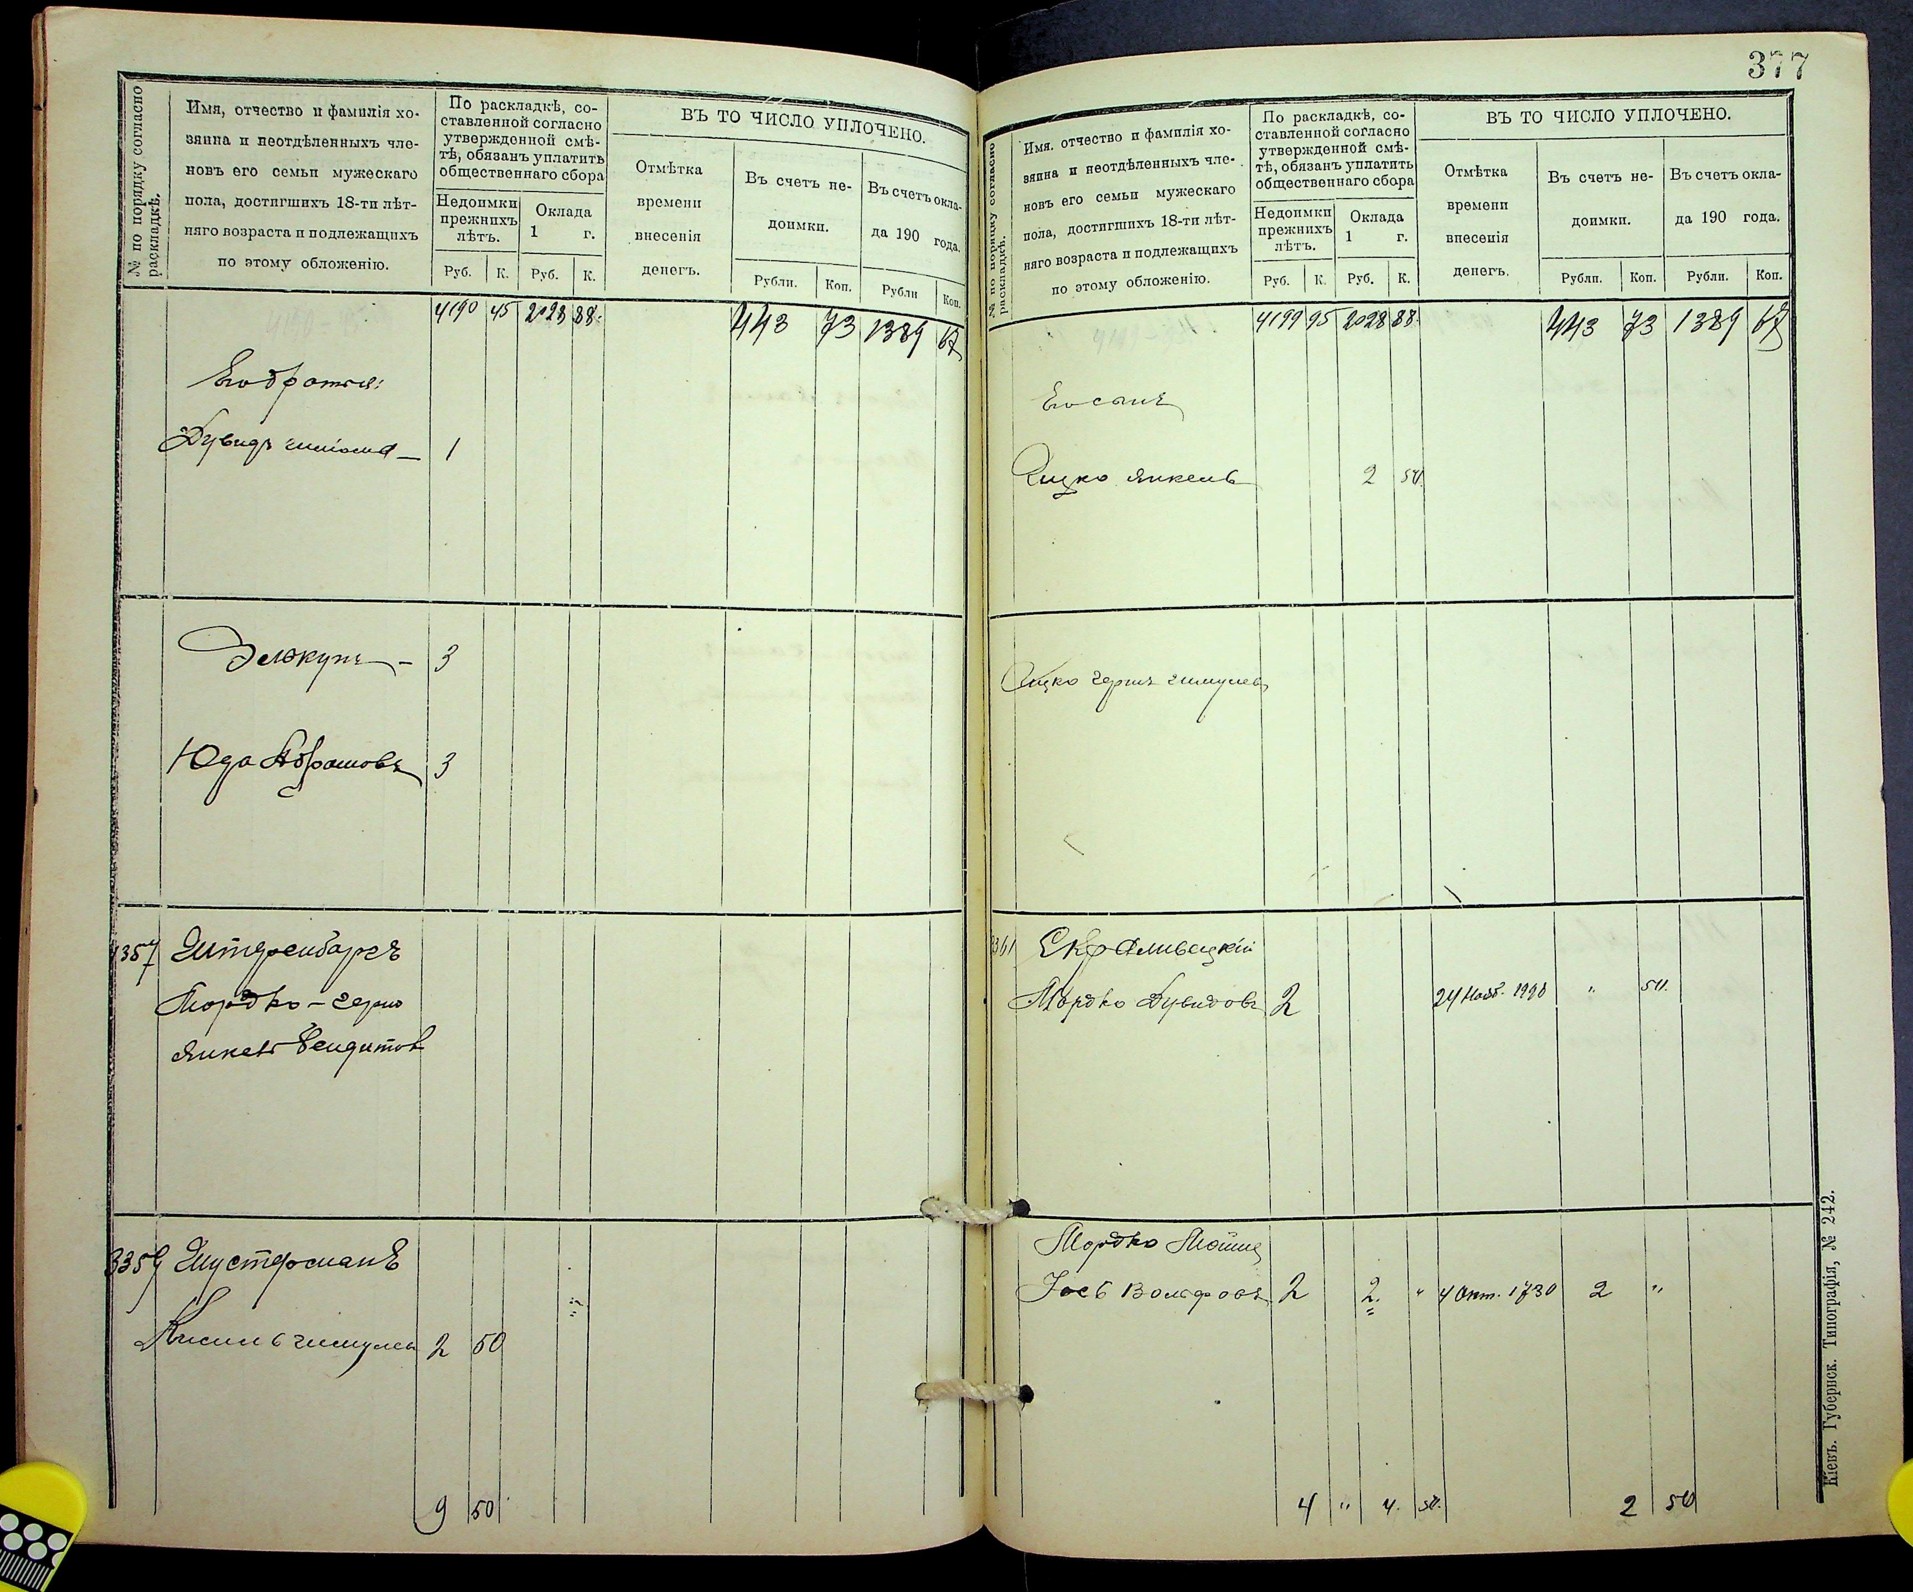 377
№ по порядку согласно раскладкѣ.
Имя, отчество и фамилія хо-
зяина и неотдѣленныхъ чле-
новъ его семьи мужескаго
пола, достигшихъ 18-ти лѣт-
няго возраста и подлежащихъ
по этому обложенію.
По раскладкѣ, со-
ставленной согласно
утвержденной смѣ-
тѣ, обязанъ уплатить
общественнаго сбора
Недоимки
прежнихъ
лѣтъ.
Оклада
1 г.
Руб. К. Руб. К.
ВЪ ТО ЧИСЛО УПЛОЧЕНО.
Отмѣтка
времени
внесенія
денегъ.
Въ счетъ не-
доимки.
Въ счетъ окла-
да 190 года.
Рубли. Коп. Рубли Коп.
4190 45 2028 88 443 73 1389 67
Его братья:
Дувидъ 1
3
Юда Абрамовъ 3
3357 Штеренбаргъ
Мордко-Герш
Янкель
3359 Шустерманъ
2 50
9 50
№ по порядку согласно раскладкѣ.
Имя. отчество и фамилія хо-
зяина и неотдѣленныхъ чле-
новъ его семьи мужескаго
пола, достигшихъ 18-ти лѣт-
няго возраста и подлежащихъ
по этому обложенію.
По раскладкѣ, со-
ставленной согласно
утвержденной смѣ-
тѣ, обязанъ уплатить
общественнаго сбора
Недоимки
прежнихъ
лѣтъ.
Оклада
1 г.
Руб. К. Руб. К.
ВЪ ТО ЧИСЛО УПЛОЧЕНО.
Отмѣтка
времени
внесенія
денегъ.
Въ счетъ не-
доимки.
Въ счетъ окла-
да 190 года.
Рубли. Коп. Рубли. Коп.
4199 95 2028 88 443 73 1389 67
Его сынъ
Ицко Янкель 2 50
Ицко Герш
3361
Мордко Дувидовъ 2 24 Нояб. " 50
Мордко Мойше
Іось Вольфовъ 2 2 " 4 Окт. 2 "
4 " 4 50 2 50
Кіевъ. Губернск. Типографія, № 242.